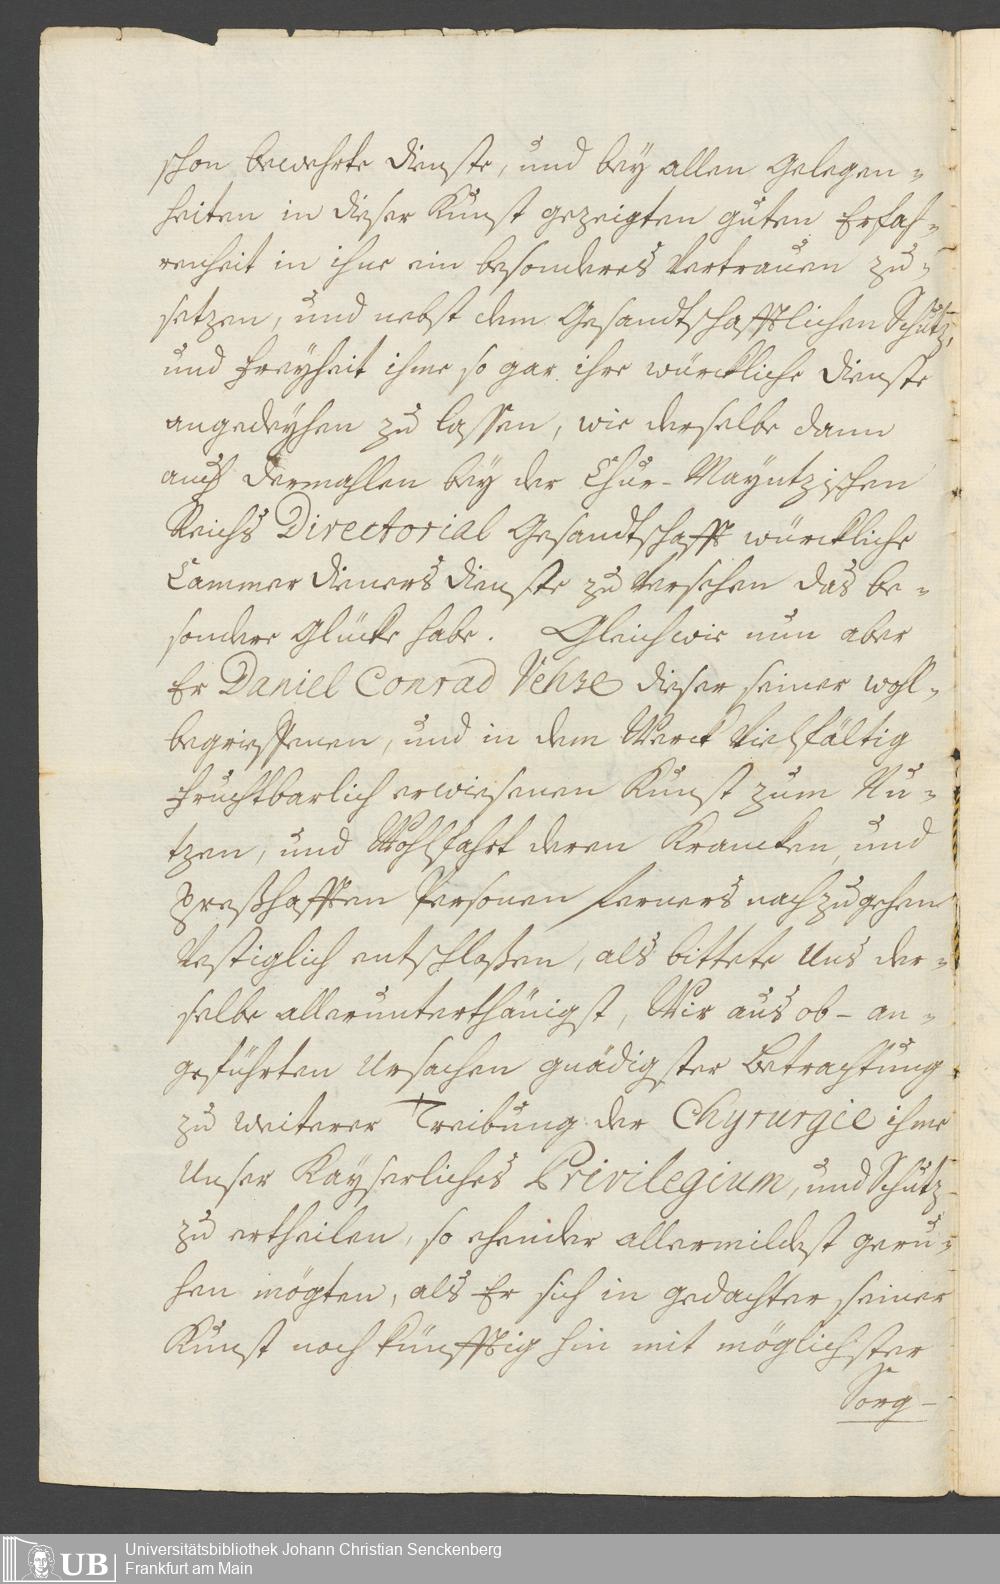 schon bewehrte Dienste, und bey allen Gelegen-
heiten in dieser Kunst gezeigten guten Erfah-
renheit in ihne ein besonderes Vertrauen zu-
setzen, und nebst dem Gesandtschafftlichen Schutz,
und Freyheit ihme so gar ihre würckliche Dienste
angedeyhen zu lassen, wie derselbe dann
auch dermahlen bey der Chur-Mayntzischen
Reichs Directorial Gesandtschafft würckliche
Cammer Dieners Dienste zu versehen das be-
sondere Glücke habe. Gleichwie nun aber
Er Daniel Conrad Vehse dieser seiner wohl-
begriffenen, und in dem Werck vielfältig
fruchtbarlich erwiesenen Kunst zum Nu-
tzen, und Wohlfahrt deren Krancken, und
presthafften Personen ferners nachzugehen
vestiglich entschlossen, als bittete Uns der-
selbe allerunterthänigst, Wir aus ob-an-
geführten Ursachen gnädigster Betrachtung
zu weiterer Treibung der Chyrurgie ihme
Unser Kayserliches Privilegium, und Schutz
zu ertheilen, so ehender allermildest geru-
hen mögten, als Er sich in gedachter seiner
Kunst noch künfftig hin mit möglichster
Sorg-
Universitätsbibliothek Johann Christian Senckenberg
Frankfurt am Main
UB